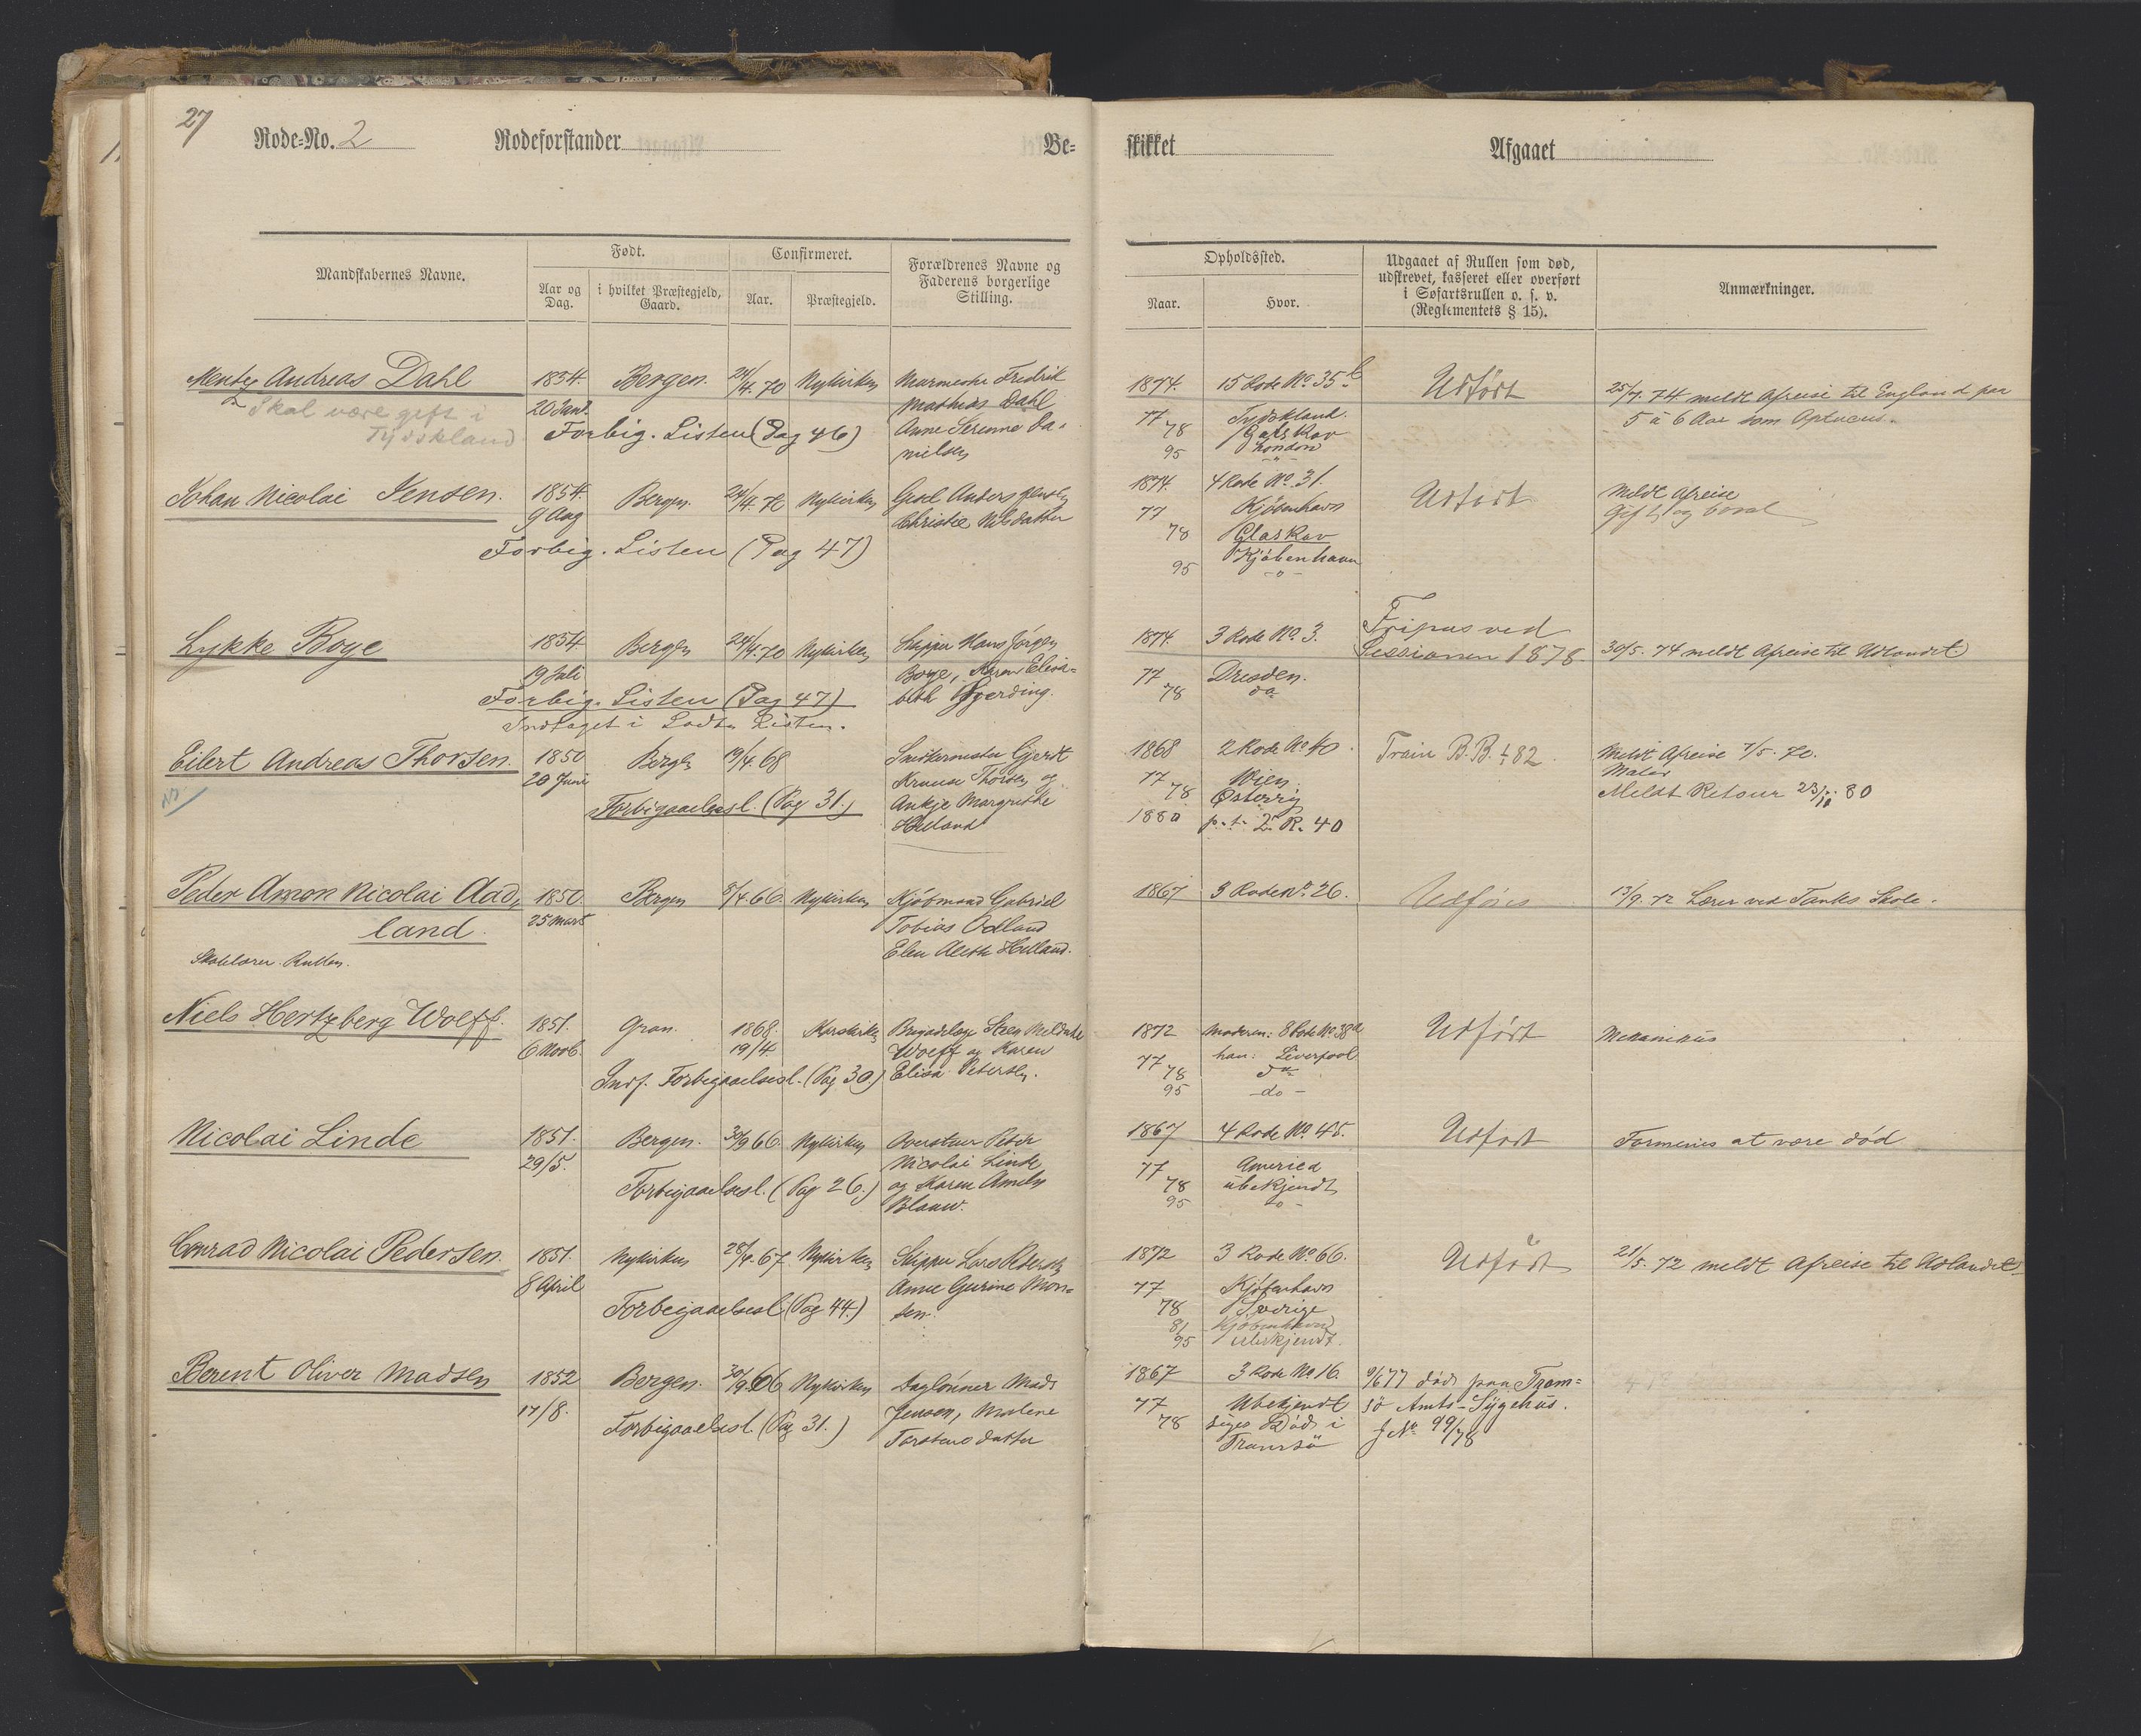 27
Rode-No. 2 Rodeforstander Be- skikket Afgaaet
Mandskabernes Navne. Født. Confirmeret. Forældrenes Navne og Faderens borgerlige Stilling. Opholdssted. Udgaaet af Rullen som død, udskrevet, kasseret eller overført i Søfartsrullen o. s. v. (Reglementets § 15). Anmærkninger.
Aar og Dag. i hvilket Præstegjeld, Gaard. Aar. Præstegjeld. Naar. Hvor.
Mentz Andreas Dahl 1854. Bergen. 24/4. 70 Nykirken Fredrik
Skal være gift i 20 Jan. Mathias Dahl
Tydskland Forbig. Listen (Pag 46) Anne Serenne Da-
nielsen
1874. 15 Rode No. 35 b Udført 25/7. 74 meldt Afreise til England paa
77 Tydskland. 5 à 6 Aar som
78
95 London
Johan Nicolai Jensen. 1854. Bergen. 24/4. 70 Nykirken Anders Jensen
9 Aug Christie Nilsdatter
Forbig. Listen (Pag 47)
1874. 4 Rode No. 31. Udført Meldt Afreise
77 Kjøbenhavn Gift og
78 Glaskov
95 Kjøbenhavn
- " -
Lykke Boye 1854 Bergen 24/4. 70 Nykirken Skipper Hans Jørgen
19 Juli Boye, Karen Elisa-
Forbig. Listen (Pag 47) beth Gjerding.
Indtaget i Lodtn Listen.
1874. 3 Rode No. 3. Fripas ved
Sessionen 1878. 30/5. 74 meldt Afreise til Udlandet
77 Dresden.
78 do
Eilert Andreas Thorsen. 1850 Bergen 19/4. 68 Snedkermester Gjerdt
20 Juni Kruuse Thorsen og
Forbigaaelsesl. (Pag 31.) Ankje Margrethe
Helland
1868 2 Rode No 40. Train B.B. 82. Meldt Afreise 7/5. 70.
77 Wien Maler
78 Østerrig Meldt Retour 23/10 80
1880 p. t. 2. R. 40
Peder Amon Nicolai Aad- 1850. Bergen 8/4. 66. Nykirken Kjøbmand Gabriel
land. 25 Marts Tobias Odland
Skolelærer-Rullen. Elen Aleth Helland.
1867 3 Rode No. 26. Udføres 13/9. 72 Lærer ved Tanks Skole.
Niels Hertzberg Wolff. 1851. Gran. 1868. Korskirken Brigadelæge
6 Novb. 19/4 Wolff og Karen
Indf. Forbigaaelsesl. (Pag 30) Elisa Petersen.
1872 Moderen: 8 Rode No. 38 a Udført Mekanikus
77 han: Liverpool
78 do
95 - do -
Nicolai Linde 1851. Bergen. 30/9 66 Nykirken Peter
29/5. Nicolai Linde
Forbigaaelsesl. (Pag 26.) og Karen Ameln
Blauw.
1867 4 Rode No 45. Udført Formenes at være død
77 America
78 ubekjendt
95
Conrad Nicolai Pedersen. 1851. Nykirken 28/4. 67 Nykirken Skipper Lars Pedersen
8 April Anne Gurine Mon-
Forbigaaelsesl (Pag 44.) sen.
1872 3 Rode No 66. Udført 21/5. 72 meldt Afreise til Udlandet
77 Kjøbenhavn
78 Sverige
81 Kjøbenhavn
95 ubekjendt.
Berent Oliver Madsen 1852 Bergen. 30/9. 66 Nykirken Daglønner Mads
17/8. Jensen, Malene
Forbigaaelsesl. (Pag 31.) Torstensdatter
1867 3 Rode No 16. 9/6 77 død paa Trom-
77 Ubekjendt sö Amts-Sygehus.
78 siges Død i J No 99/78
Tromsö